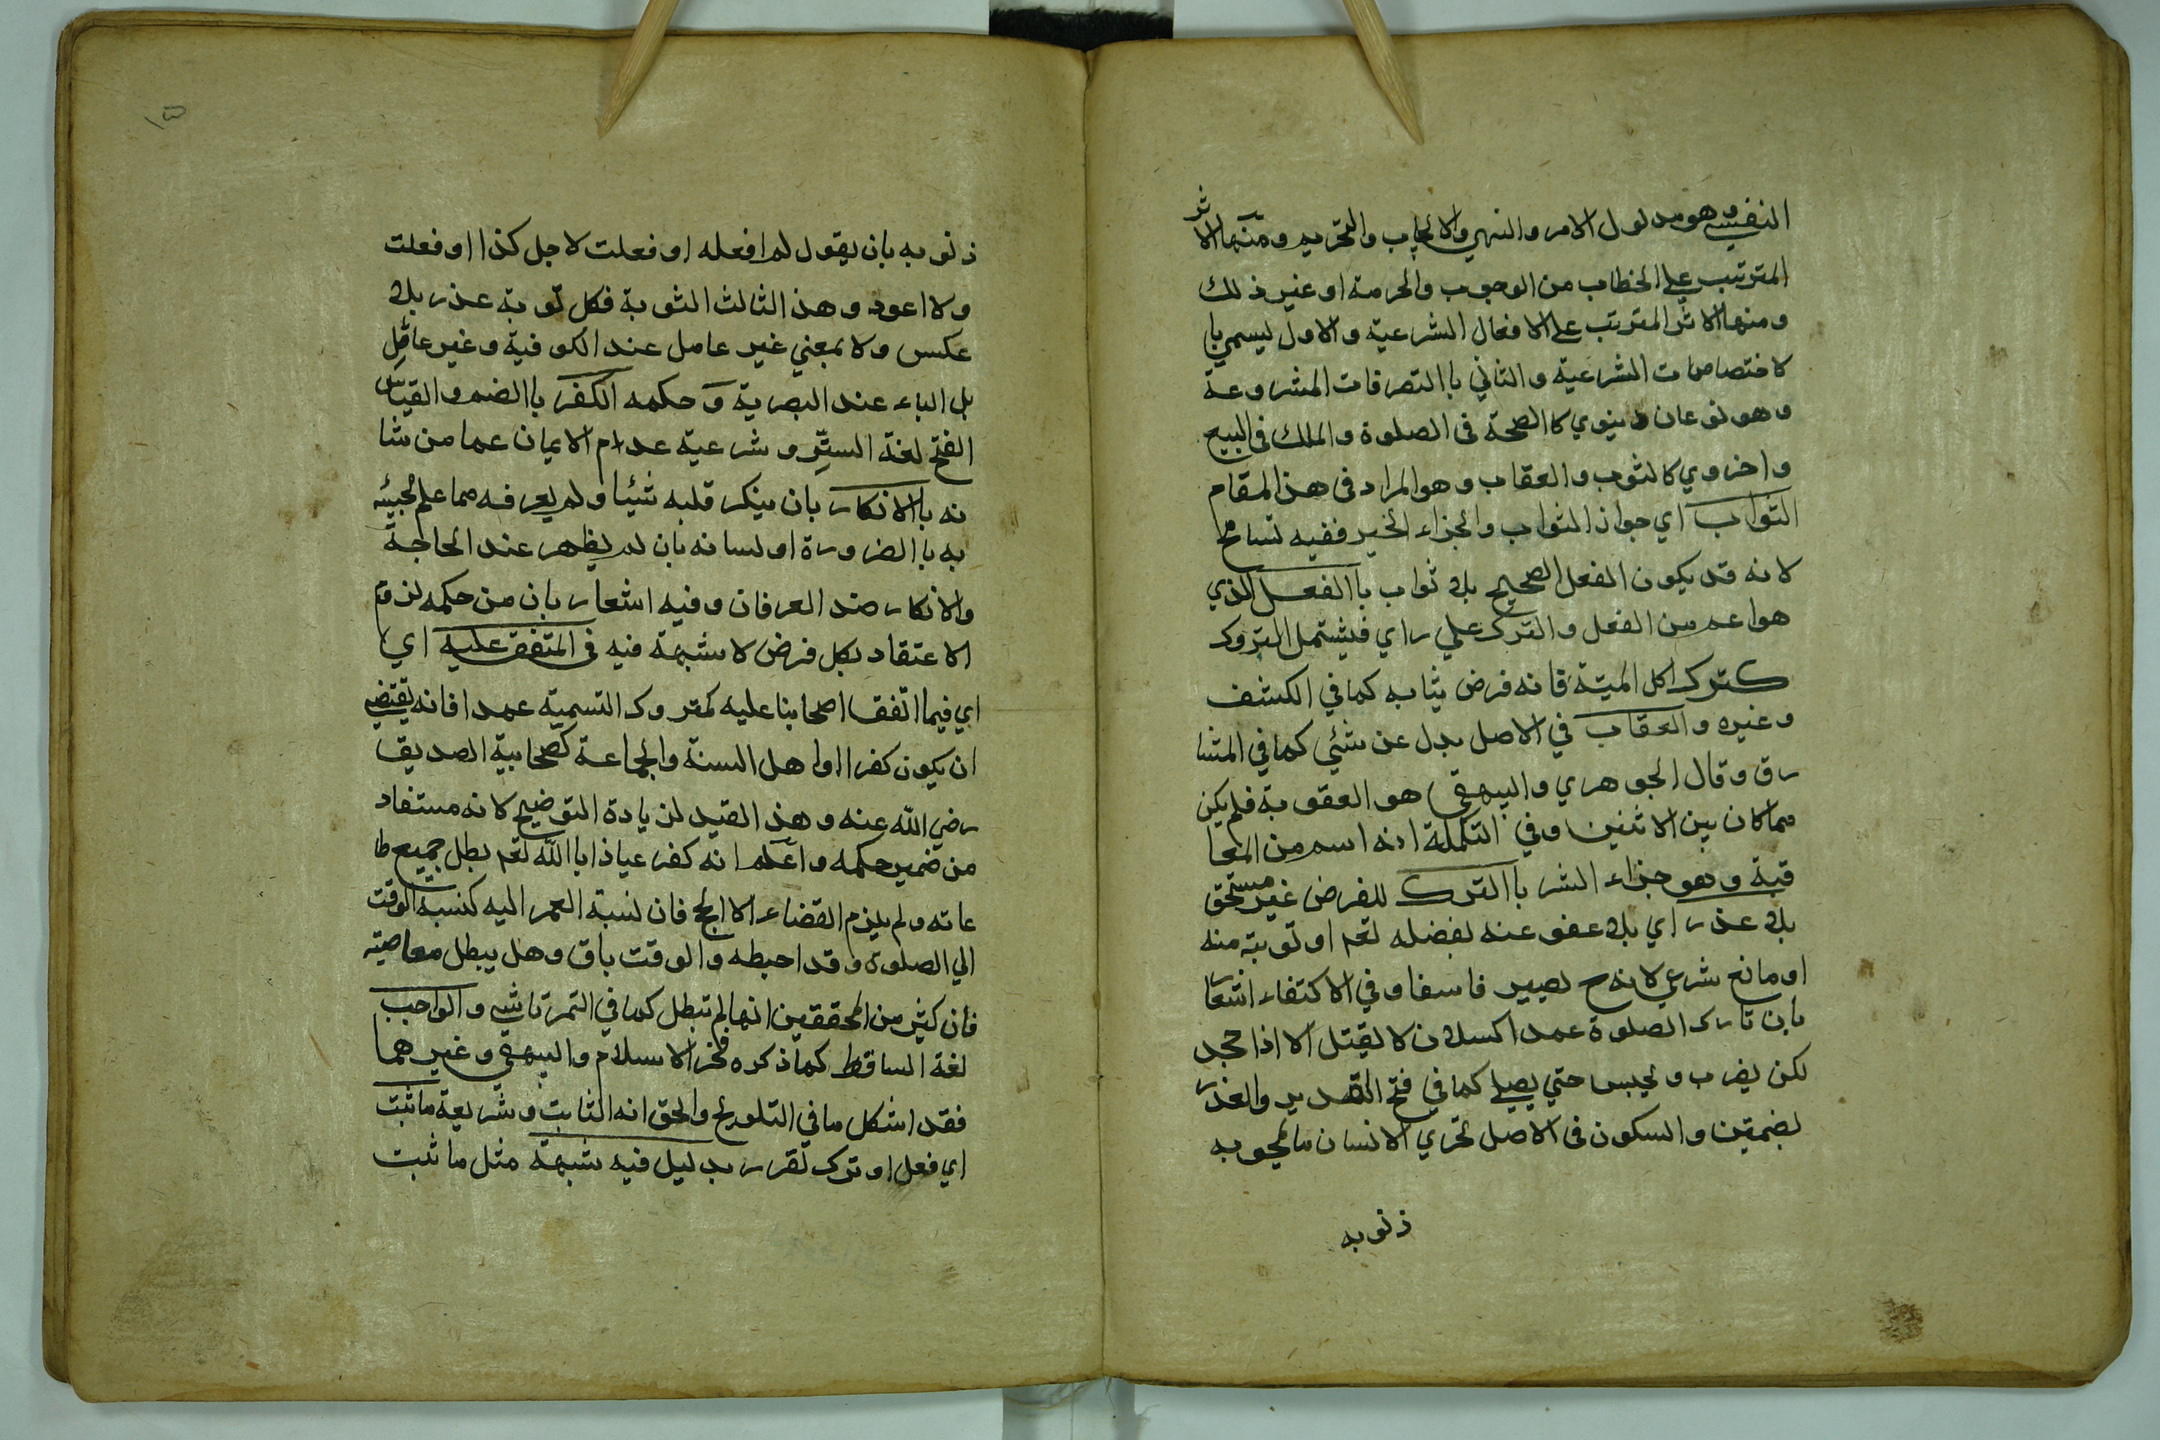 النفسي وهو مدلول الامر والنهي والايجاب والتحريم ومنها الاثر
المترتب على الخطاب من الوجوب والحرمة او غير ذلك
ومنها الاثر المترتب على الافعال الشرعية والاول يسمي با
لاختصاصات الشرعية والثاني باالتصرفات المشروعة
وهو نوعان دينوي كاالصحة فى الصلوة والملك فى البيع
واخروي كالثوب والعقاب وهو المراد فى هذ المقام
الثواب اي جواز الثواب والجزاء الخير ففيه تسامح
لانه قد يكون الفعل الصحيح بلا ثواب باالفعل الذي
هو اعم من الفعل والترك علي راي فيشتمل التروك
كترك اكل الميتة فانه فرض يثاب به كما في الكشف
وغيره والعقاب في الاصل بدل عن شئي كما في المشا
رق وقال الجوهري والبيهقي هو العقوبة فلم يكن
مما كان بين الاثنين وفي التكملة انه اسم من المعا
قبة وهو جزاء الشر باالترك للفرض غير مستحق
بلا عذر اي بلا عفو عنه بفضله تعم او توبة منه
او مانع شرعي لانه ح يصير فاسقا وفي الاكتفاء اشعا
بأن تارك الصلوة عمدا كسلان لا يقتل الا اذا جحد
لكن يضرب ويحبس حتي يصلي كما في فتح القدير والعذر
بضمتين والسكون فى الاصل تحري الانسان ما يمحو به
ذنوبه
١٥
ذنوبه بان يقول لم افعله او فعلت لاجل كذا او فعلت
ولا اعود وهذ الثالث التوبة فكل توبة عذر بلا
عكس ولا بمعني غير عامل عند الكوفية وغير عامل
بل الباء عند البصرية وحكمه الكفر باالضم والقياس
الفتح لغة الستر وشرعية عدم الايمان عما من شا
نه باالانكار بان ينكر قلبه شئيا ولم يعرفه مما علم مجيئه
به باالضرورة او لسانه بان لم يظهر عند الحاجة
والانكار ضد العرفان وفيه اشعار بان من حكمه لزوم
الاعتقاد بكل فرض لا شبهة فيه فى المتفق عليه اي
اي فيما اتفق اصحابنا عليه كمتروك التسمية عمدا فانه يقتضي
ان يكون كفرا او اهل السنة والجماعة كصحابية الصديق
رضي الله عنه وهذ القيد لزيادة التوضيح لانه مستفاد
من ضمير حكمه واعلم انه كفر عياذا باالله تعم بطل جميع طا
عاته ولم يلزم القضاء الا الحج فان نسبة العمر اليه كنسبة الوقت
الي الصلوة وقد احبطه والوقت باق وهل يبطل معاصيه
فان كثير من المحققين انها لم تبطل كما في التمرتاشي والواجب
لغة الساقط كما ذكره فخر الاسلام والبيهقي وغيرهما
فقد اشكل ما في التلويح والحق انه الثابت وشريعة ما ثبت
اي فعل او ترك تقرر بدليل فيه شبهة مثل ما ثبت